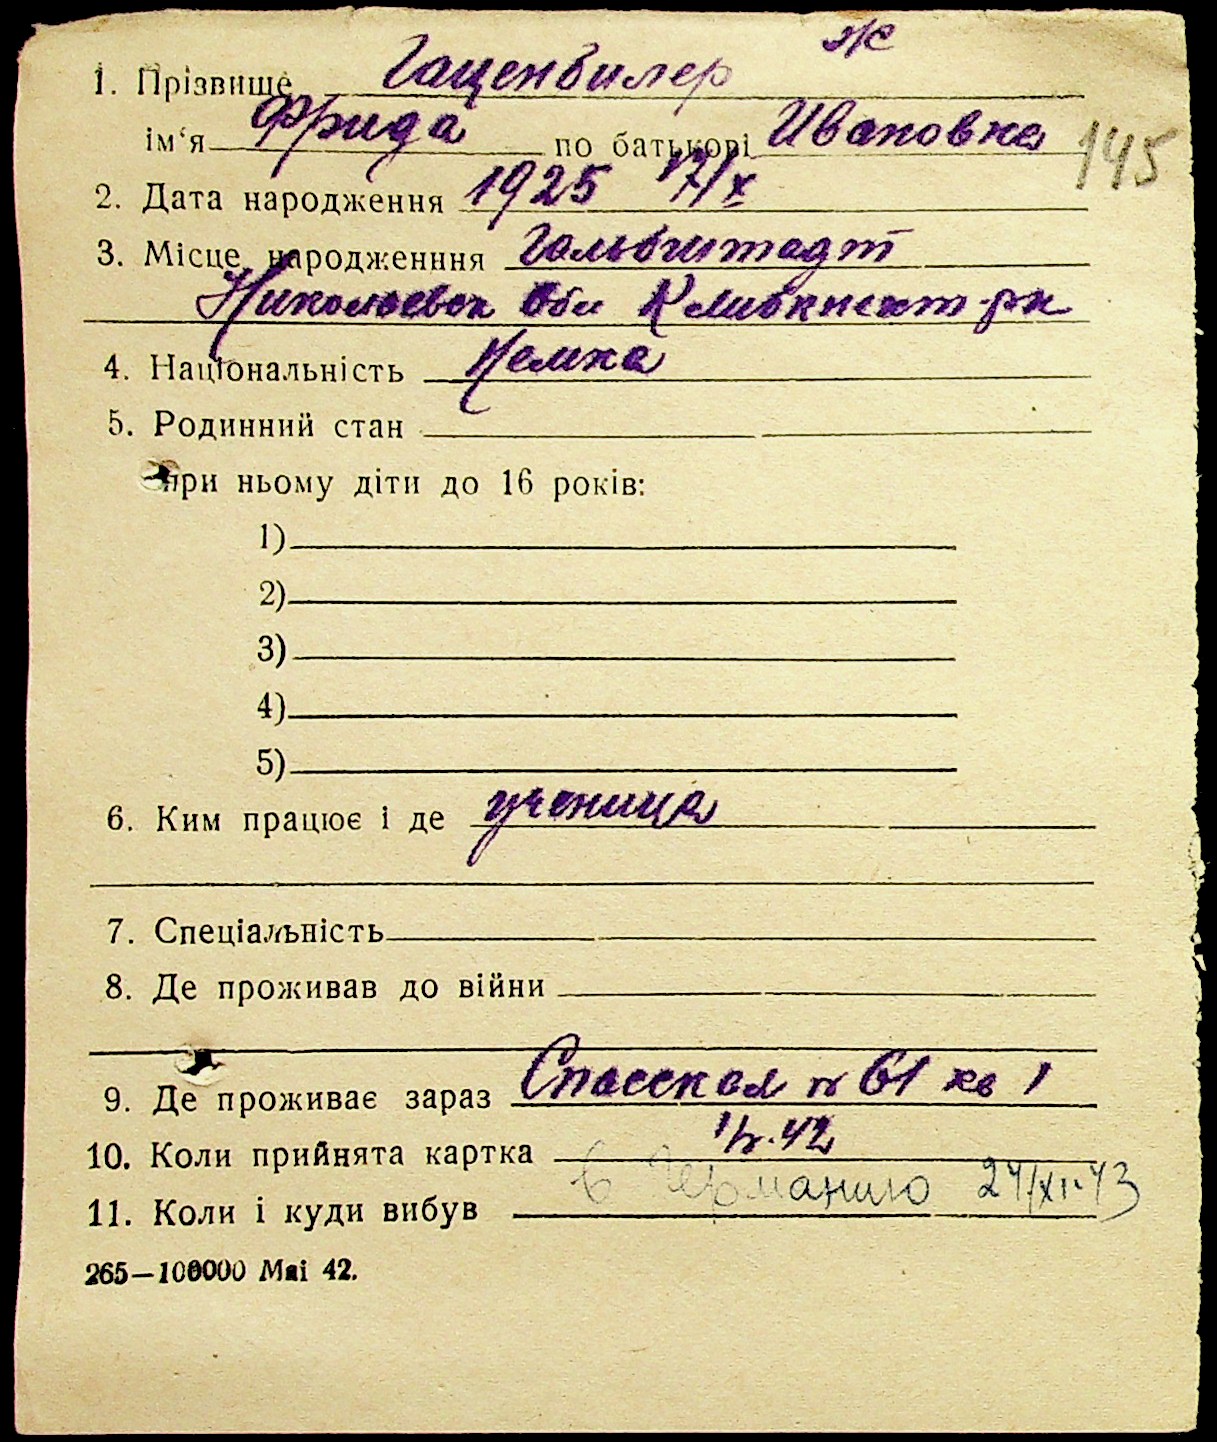 ж
1. Прізвище Гаценбилер
ім'я Фрида по батькові Ивановна 145
2. Дата народження 1925 17/X
3. Місце народженння Гальбштадт
Николаевск Обл К Либкнехт р-н
4. Національність Немка
5. Родинний стан
при ньому діти до 16 років:
1)
2)
3)
4)
5)
6. Ким працює і де ученица
7. Спеціальність
8. Де проживав до війни
9. Де проживає зараз Спасская № 61 кв 1
10. Коли прийнята картка 42
11. Коли і куди вибув в Германию 24/XI-43
265—100000 Маі 42.